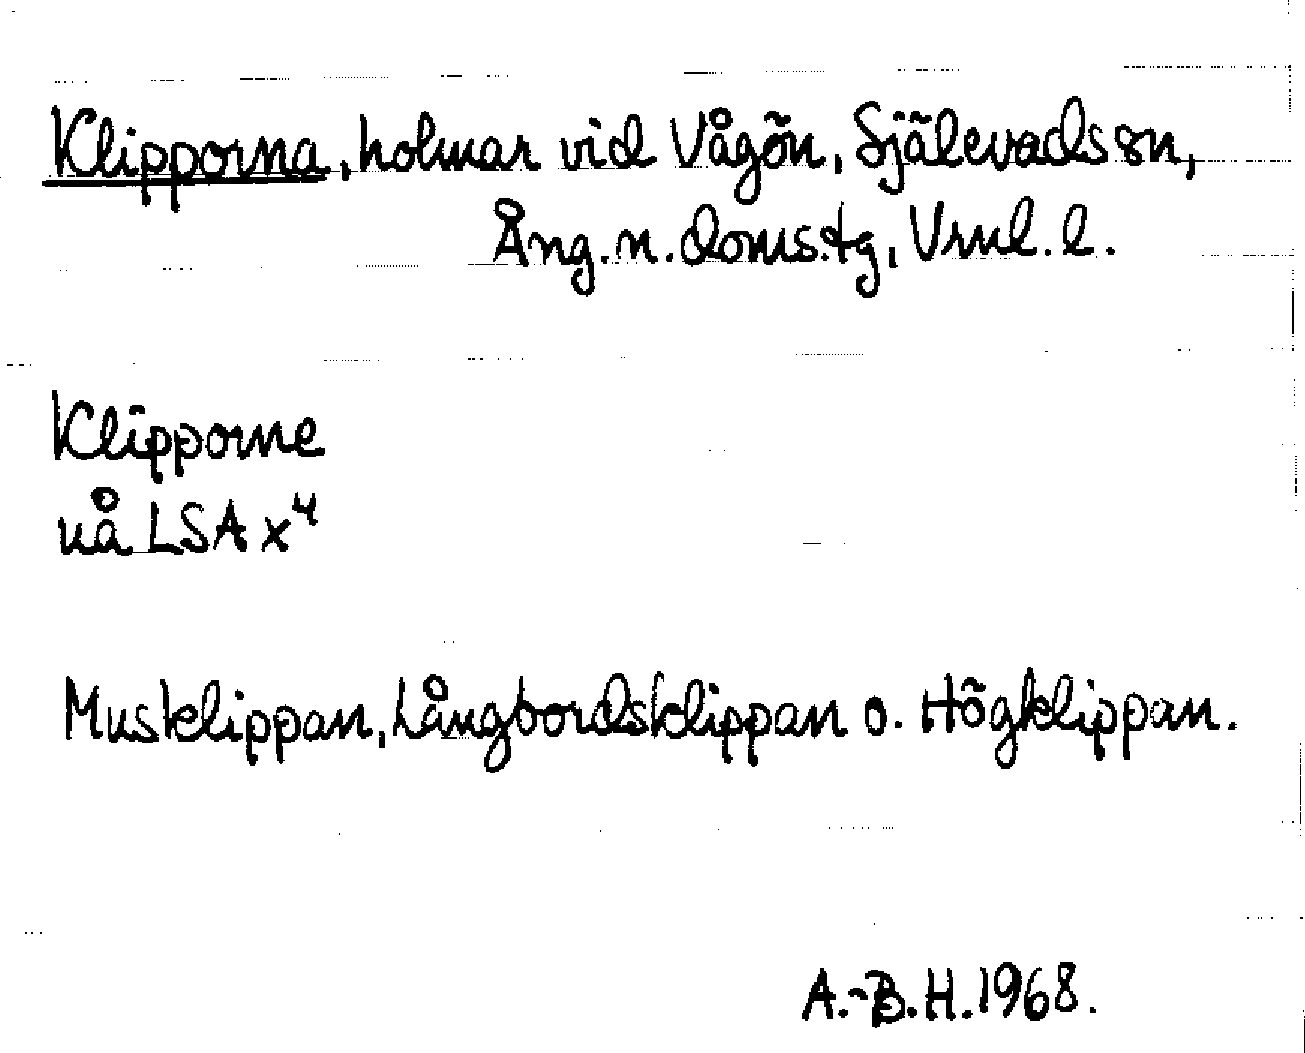 Klipporna, holmar vid Vågön, Själevads sn,
Ång. n. doms.tg, Vrnl. l.
Klipporne
uå LSA x⁴
Musklippan, Långbordsklippan o. Högklippan.
A.-B.H. 1968.